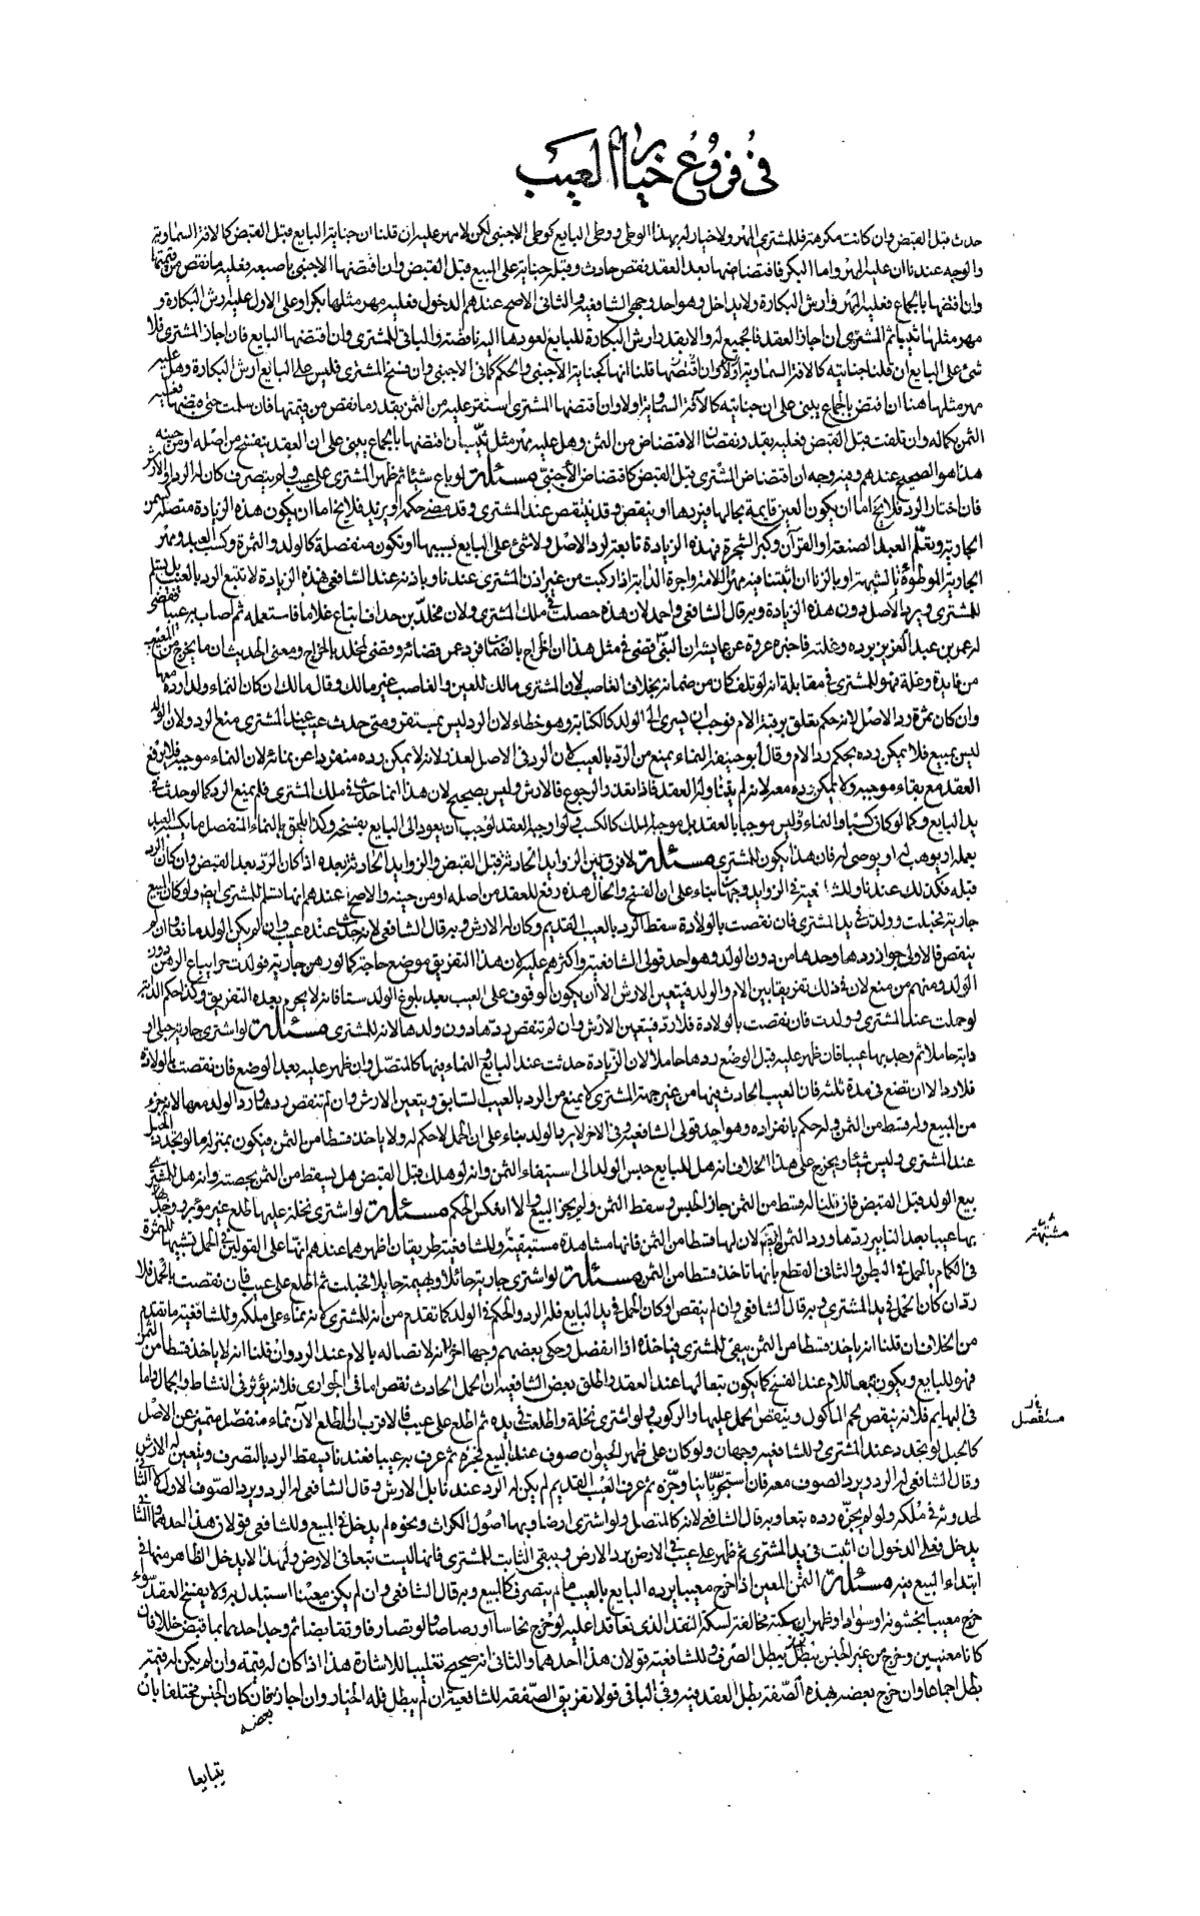 في فروع خيار العيب
حدث قبل القبض وان كانت مكرهة فللمشتري المهر ولا خيار له بهذا الوطي ووطي البايع كوطي الاجنبي لكن لا مهر عليه ان قلنا ان جناية البايع قبل القبض كالافة السماوية
والوجه عندنا ان عليه المهر واما البكر فافتضاضها بعد العقد نقص حادث وقبله جناية على المبيع قبل القبض وان افتضها الاجنبي باصبعه فعليه ما نقص من قيمتها
وان افتضها بالجماع فعليه المهر وارش البكارة ولا يداخل وهو احد وجهي الشافعية والثاني الاصح عندهم الدخول فعليه مهر مثلها بكرا وعلى الاول عليه ارش البكارة و
مهر مثلها ثيبا ثم المشتري ان اجاز العقد فالجميع له والا بقدر ارش البكارة للبايع لعودها اليه ناقضة والباقي للمشتري وان افتضها البايع فان اجاز المشتري فلا
شيء على البايع ان قلنا جنايته كالافة السماوية او لا وان قلنا انها كجناية الاجنبي والحكم كما في الاجنبي وان فسخ المشتري فليس على البايع ارش البكارة وهل عليه
مهر مثلها هنا ان افتض بالجماع يبنى على ان جنايته كالآفة السماوية او لا وان افتضها المشتري استقر عليه من الثمن بقدر ما نقص من قيمتها فان سلمت حتى قبضها فعليه
الثمن بكماله وان تلفت قبل القبض فعليه بقدر نقصان الافتضاض من الثمن وهل عليه مهر مثل ثيب ان افتضها بالجماع يبنى على ان العقد ينفسخ من اصله او من حينه
هذا هو الصحيح عندهم وفيه وجه ان افتضاض المشتري قبل القبض كافتضاض الأجنبي مسئلة لو باع شيئا ثم ظهر المشتري على عيب ولم يتصرف كان له الرد او الارش
فان اختار الرد فلا يخ اما ان يكون العين قايمة بحالها فيردها او ينقص وقد ينقص عند المشتري وقد مضى حكمه او يزيد فلا يخ اما ان يكون هذه الزيادة متصلة كسمن
الجارية وتعلم العبد الصنعة او القرآن وكبر الشجرة فهذه الزيادة تابعة لرد الاصل ولا شيء على البايع بسببها او تكون منفصلة كالولد والثمرة وكسب العبد ومهر
الجارية الموطوءة بالشبهة او بالزنا ان اثبتنا فيه مهر للامة واجرة الدابة اذا ركبت من غير اذن المشتري عندنا وباذنه عند الشافعي فهذه الزيادة لا تتبع الرد بالعيب بل يسلم
للمشتري ويرد الأصل دون هذه الزيادة وبه قال الشافعي واحد لان هذه حصلت في ملك المشتري ولان مخلد بن خفاف ابتاع غلاما فاستعمله ثم اصاب به عيبا فقضى
له عمر بن عبد العزيز برده وغلته فاخبره عروة عن عايشة ان النبي قضى في مثل هذا ان الخراج بالضمان فرد عمر قضائه وقضى لمخلد بالخراج ومعنى الحديث ان ما يخرج من المبيع
من فايدة وغلة فهو للمشتري في مقابلة انه لو تلف كان من ضمانه بخلاف الغاصب لان المشتري مالك للعين والغاصب غير مالك وقال مالك ان كان النماء ولدا رده معها
وان كان ثمرة رد الاصل لانه حكم تعلق برقبة الام فوجب ان يسري الى الولد كالكتابة وهو خطاء لان الرد ليس بمستقر ومتى حدث عيب عند المشتري منع الرد ولان الولد
ليس بمبيع فلا يمكن رده بحكم رد الام وقال ابو حنيفة النماء يمنع من الرد بالعيب لان الرد في الاصل لعذر لانه لا يمكن رده منفردا عن نمائه لان النماء موجبه فلا يرفع
العقد مع بقاء موجبه ولا يمكن رده معه لانه لم يتناوله العقد فاذا تعذر الرجوع فالارش وليس بصحيح لان هذا النماء حادث في ملك المشتري فلم يمنع الرد كما لو حدث في
يد البايع وكما لو كان كسبا والنماء ليس موجبا بالعقد بل موجبه الملك كالكسب فلو اوجبه العقد لوجب ان يعود الى البايع بفسخه وكذا يلحق بالنماء المنفصل ما يكتسبه العبد
بعمله او يوهب له او يوصى له فان هذا يكون للمشتري مسئلة لا فرق بين الزوايد الحادثة قبل القبض والزوايد الحادثة بعده اذا كان الرد بعد القبض وان كان الرد
قبله فكذلك عندنا وللشافعية في الزوايد وجهان بناء على ان الفسخ والحال هذه رفع للعقد من اصله او من حينه والاصح عندهم انها تسلم للمشتري ايضا ولو كان المبيع
جارية فحبلت وولدت في يد المشتري فان نقصت بالولادة سقط الرد بالعيب القديم وكان له الارش وبه قال الشافعي لانه حدث عنده عيب وان لم يكن الولد مانعا وان لم
ينقص فالاولى جواز ردها وحدها من دون الولد وهو احد قولي الشافعية واكثرهم عليه لان هذا التفريق موضع حاجة كما لو رهن جارية فولدت حرا يباع الرهن دون
الولد ومنهم من منع لان في ذلك تفريقا بين الام والولد فيتعين الارش الا ان يكون الوقوف على العيب بعد بلوغ الولد ستا فانه لا يحرم بعده التفريق وكذا حكم الدابة
لو حملت عند المشتري وولدت فان نقصت بالولادة فلا رد فيتعين الارش وان لم تنقص ردها دون ولدها لانه للمشتري مسئلة لو اشترى جارية حبلى او
دابة حاملا ثم وجد بها عيبا فان ظهر عليه قبل الوضع ردها حاملا لان الزيادة حدثت عند البايع والنماء فيها كالمتصل وان ظهر عليه بعد الوضع فان نقصت بالولادة
فلا رد الا ان تضع في مدة ثلثة فان العيب الحادث فيها من غير جهة المشتري لا يمنع من الرد بالعيب السابق ويتعين الارش وان لم تنقص ردها ورد الولد معها لانه جزء
من المبيع وله قسط من الثمن وله حكم بانفراده وهو احد قولي الشافعية وفي الاخر لا يرد الولد بناء على ان الحمل لا حكم له ولا ياخذ قسطا من الثمن فيكون بمنزلة ما لو تجدد الحبل
عند المشتري وليس شيئا ويخرج على هذا الخلاف انه هل للبايع حبس الولد الى استيفاء الثمن وانه لو هلك قبل القبض هل يسقط من الثمن بحصته وانه هل للمشتري
بيع الولد قبل القبض فان قلنا له قسط من الثمن جاز الحبس وسقط الثمن ولم يجز البيع والا انعكس الحكم مسئلة لو اشترى نخلة عليها طلع غير مؤبر ووجد بها
بها عيبا بعد التابير ردها ورد الثمرة لان لها قسطا من الثمن فانها مشاهدة مستيقنة وللشافعية طريقان اظهرهما عندهم انها على القولين في الحمل تشبيها للثمرة
في الكمام بالحمل في البطن والثاني القطع بانها تاخذ قسطا من الثمن مسئلة لو اشترى جارية حائلا او بهيمة حايلا فحبلت ثم اطلع على عيب فان نقصت بالحمل فلا
رد ان كان الحمل في يد المشتري وبه قال الشافعي وان لم ينقص او كان الحمل في يد البايع فله الرد والحكم في الولد كما تقدم من انه للمشتري لانه نماء على ملكه وللشافعية ما تقدم
من الخلاف ان قلنا انه ياخذ قسطا من الثمن بقى للمشتري فياخذه اذا انفصل وحكى بعضهم وجها اخر انه لاتصاله بالام عند الرد وان قلنا انه لا ياخذ قسطا من الثمن
فهو للبايع ويكون تبعا للام عند الفسخ كما يكون تبعا لها عند العقد واطلق بعض الشافعية ان الحمل الحادث نقص اما في الجواري فلانه يؤثر في النشاط والجمال واما
في البهايم فلانه ينقص لحم الماكول وينقص الحمل عليها والركوب ولو اشترى نخلة واطلعت في يده ثم اطلع على عيب فالاقرب ان الطلع الآن نماء منفصل متميز عن الاصل
كالحبل لو تجدد عند المشتري وللشافعية وجهان ولو كان على ظهر الحيوان صوف عند البيع فجزه ثم عرف به عيبا فعندنا يسقط الرد بالتصرف ويتعين له الارش
وقال الشافعي له الرد ويرد الصوف معه فان استجز ثانيا وجزه ثم عرف العيب القديم لم يكن له الرد عندنا بل الارش وقال الشافعي له الرد ويرد الصوف الاول لا الثاني
لحدوثه في ملكه ولو لم يجزه رده تبعا وبه قال الشافعي لانه كالمتصل ولو اشترى ارضا وبها اصول الكراث ونحوه لم يدخل في المبيع وللشافعي قولان هذا احدهما والثاني
يدخل فعلى الدخول ان اثبت في يد المشتري ثم ظهر على عيب في الارض رد الارض ويبقى الثابت للمشتري فانها ليست تبعا في الارض ولهذا لا يدخل الظاهر منها في
ابتداء البيع فيه مسئلة الثمن المعين اذا خرج معيبا يرده البايع بالعيب ما لم يتصرف كالمبيع وبه قال الشافعي وان لم يكن معينا استبدل به ولا يفسخ العقد سواء
خرج معيبا بخشونة او سواد او ظهر ان سكته مخالفة لسكة النقد الذي تعاقدا عليه لو خرج نحاسا او رصاصا ولو تصارفا وتقابضا ثم وجد احدهما بما قبض خللا فان
كانا معينين وخرج من غير الجنس بطل الصرف وللشافعية قولان هذا احدهما والثاني انه صحيح تغليبا للاشارة هذا اذا كان له قيمة وان لم يكن له قيمة
بطل اجماعا وان خرج بعضه بهذه الصفة بطل العقد فيه وفي الباقي قولا تفريق الصفقة للشافعية ان لم يبطل فله الخيار وان اجاز فان كان الجنس مختلفا بان
بعضه
يتبايعا
مشبهة
منفصل